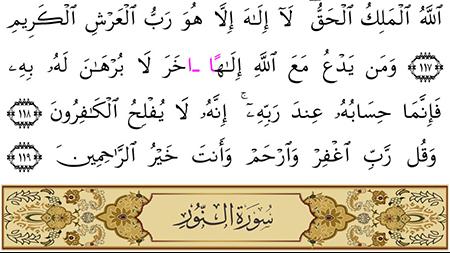 ٱللَّهُ ٱلْمَلِكُ ٱلْحَقُّ ۖ لَآ إِلَـٰهَ إِلَّا هُوَ رَبُّ ٱلْعَرْشِ ٱلْكَرِيمِ
﴿١١٧﴾ وَمَن يَدْعُ مَعَ ٱللَّهِ إِلَـٰهًا ـا خَرَ لَا بُرْهَـٰنَ لَهُۥ بِهِۦ
فَإِنَّمَا حِسَابُهُۥ عِندَ رَبِّهِۦٓ ۚ إِنَّهُۥ لَا يُفْلِحُ ٱلْكَـٰفِرُونَ ﴿١١٨﴾
وَقُل رَّبِّ ٱغْفِرْ وَٱرْحَمْ وَأَنتَ خَيْرُ ٱلرَّٰحِمِينَ ﴿١١٩﴾
سُورَةُ النُّورِ